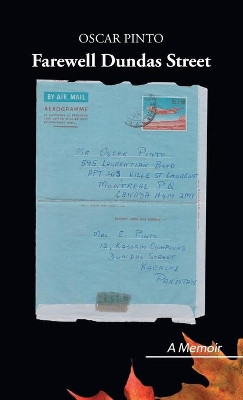 OSCAR PINTO
Farewell Dundas Street
BY AIR MAIL
AEROGRAMME
MR OSCAR PINTO
595 LAURENTIAN BLVD
APT 203 VILLE ST LAURENT
MONTREAL P.Q.
CANADA H4M 2M1
MRS E. PINTO
12, KASHRIM COMPOUND
DUNDAS STREET
KARACHI
PAKISTAN
A Memoir